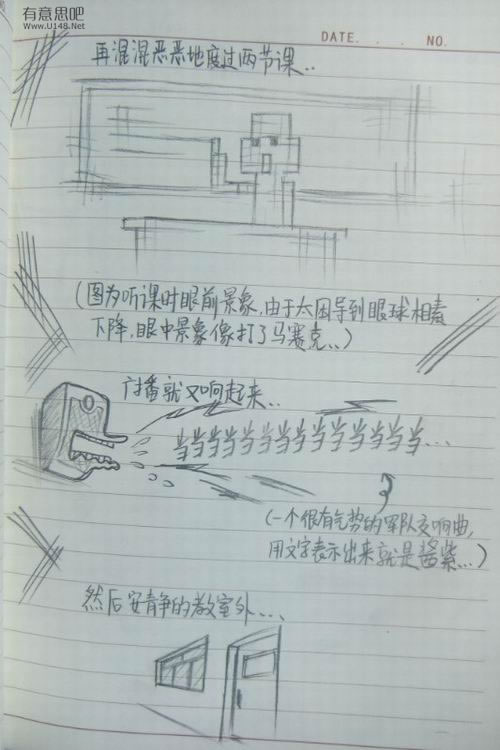 有意思吧
www.U148.Net
DATE. . . NO.
再混混恶恶地度过两节课..
(图为听课时眼前景象,由于太困导到眼球相素
下降,眼中景象像打了马赛克..)
广播就又响起来..
当当当当当当当当当当当当当当...
(一个很有气势的军队交响曲,
用文字表示出来就是酱紫...)
然后安静的教室外...